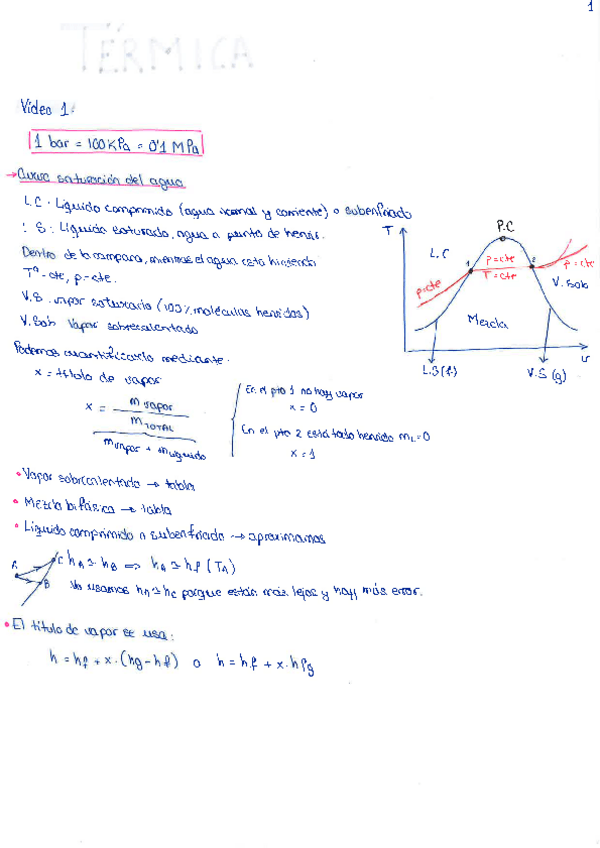 1
TÉRMICA
Vídeo 1:
1 bar = 100 KPa = 0'1 MPa
→ Curva saturación del agua
L.C: Líquido comprimido (agua normal y corriente) o subenfriado
L.S: Líquido saturado, agua a punto de hervir.
Dentro de la campana, mientras el agua está hirviendo
Tª-cte, p-cte.
V.S: vapor saturado (100% moléculas hervidas)
V.Sob Vapor sobrecalentado
Podemos cuantificarlo mediante:
x = título de vapor
x = m vapor / m TOTAL
m vapor + m líquido
En el pto 1 no hay vapor
x = 0
En el pto 2 está todo hervido mL=0
x = 1
T
P.C
L.C
p=cte
T=cte
1
2
p=cte
p=cte
V.Sob
Mezcla
v
L.S (f)
V.S (g)
• Vapor sobrecalentado → tabla
• Mezcla bifásica → tabla
• Líquido comprimido o subenfriado → aproximamos
A
B
C
hA ≃ hB ⇒ hA ≃ hf (TA)
No usamos hA ≃ hC porque están más lejos y hay más error.
• El título de vapor se usa:
h = hf + x·(hg - hf) o h = hf + x·hfg